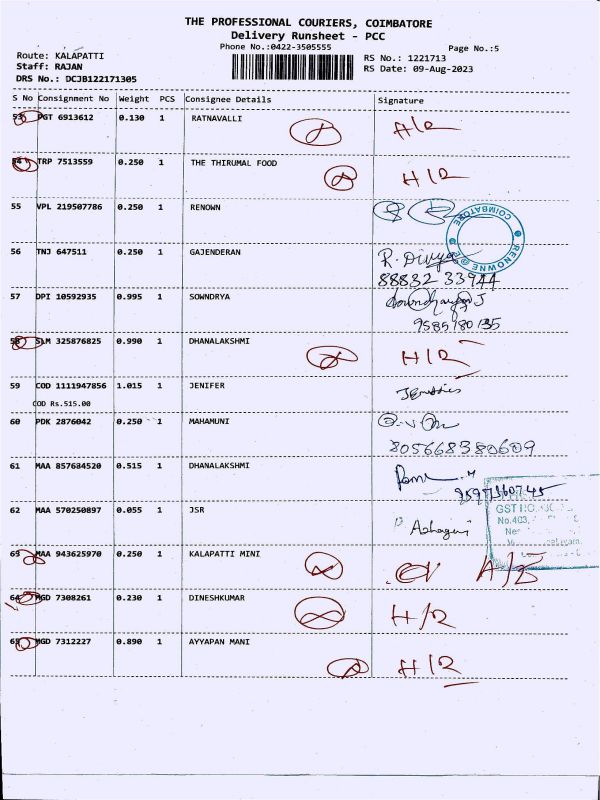 THE PROFESSIONAL COURIERS, COIMBATORE
Delivery Runsheet - PCC
Phone No.:0422-3505555
Page No.:5
Route: KALAPATTI
RS No.: 1221713
Staff: RAJAN
RS Date: 09-Aug-2023
DRS No.: DCJB122171305
S No Consignment No Weight PCS Consignee Details Signature
53 PGT 6913612 0.130 1 RATNAVALLI H/R
54 TRP 7513559 0.250 1 THE THIRUMAL FOOD H/R
55 VPL 219507786 0.250 1 RENOWN
COIMBATORE
RENOWNE
56 TNJ 647511 0.250 1 GAJENDERAN R. Divya
88832 33944
57 DPI 10592935 0.995 1 SOWNDRYA
9585780135
58 SLM 325876825 0.990 1 DHANALAKSHMI H/R
59 COD 1111947856 1.015 1 JENIFER
COD Rs.515.00
60 PDK 2876042 0.250 1 MAHAMUNI
805668380609
61 MAA 857684520 0.515 1 DHANALAKSHMI
62 MAA 570250897 0.055 1 JSR
GST NO.
No.403,
63 MAA 943625970 0.250 1 KALAPATTI MINI
64 MGD 7308261 0.230 1 DINESHKUMAR H/R
65 MGD 7312227 0.890 1 AYYAPAN MANI H/R